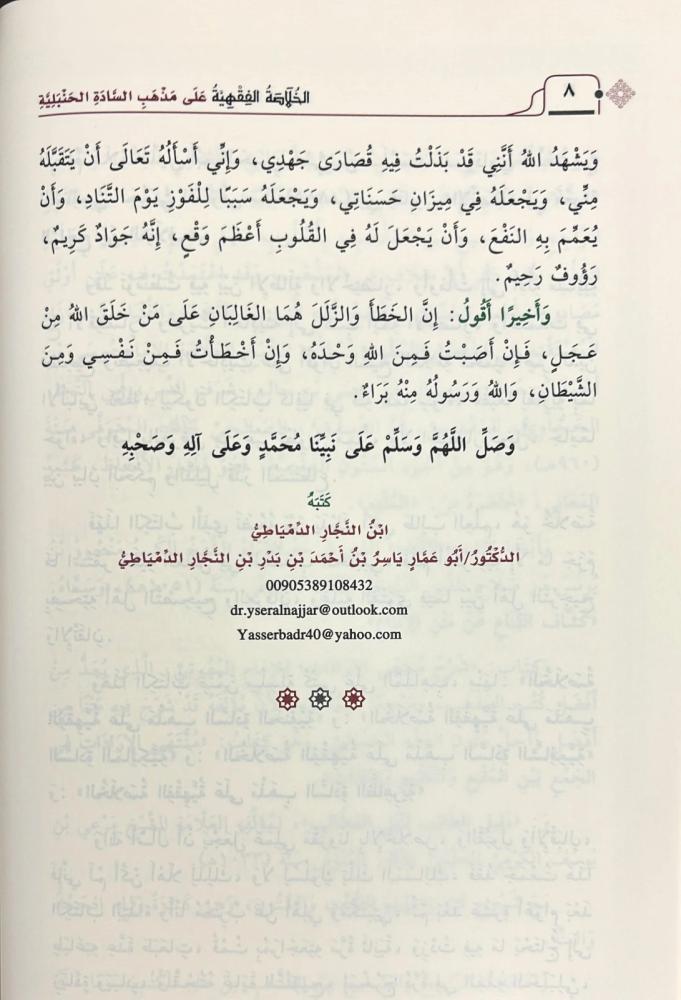 ٨
الخُلَاصَةُ الفِقْهِيَّةُ عَلَى مَذْهَبِ السَّادَةِ الحَنْبَلِيَّةِ
وَيَشْهَدُ اللهُ أَنَّنِي قَدْ بَذَلْتُ فِيهِ قُصَارَى جَهْدِي، وَإِنِّي أَسْأَلُهُ تَعَالَى أَنْ يَتَقَبَّلَهُ
مِنِّي، وَيَجْعَلَهُ فِي مِيزَانِ حَسَنَاتِي، وَيَجْعَلَهُ سَبَبًا لِلْفَوْزِ يَوْمَ التَّنَادِ، وَأَنْ
يُعَمِّمَ بِهِ النَّفْعَ، وَأَنْ يَجْعَلَ لَهُ فِي القُلُوبِ أَعْظَمَ وَقْعٍ، إِنَّهُ جَوَادٌ كَرِيمٌ،
رَؤُوفٌ رَحِيمٌ.
وَأَخِيرًا أَقُولُ: إِنَّ الخَطَأَ وَالزَّلَلَ هُمَا الغَالِبَانِ عَلَى مَنْ خَلَقَ اللهُ مِنْ
عَجَلٍ، فَإِنْ أَصَبْتُ فَمِنَ اللهِ وَحْدَهُ، وَإِنْ أَخْطَأْتُ فَمِنْ نَفْسِي وَمِنَ
الشَّيْطَانِ، وَاللهُ وَرَسُولُهُ مِنْهُ بَرَاءٌ.
وَصَلِّ اللَّهُمَّ وَسَلِّمْ عَلَى نَبِيِّنَا مُحَمَّدٍ وَعَلَى آلِهِ وَصَحْبِهِ
كَتَبَهُ
ابْنُ النَّجَّارِ الدِّمْيَاطِيُّ
الدُّكْتُورُ/أَبُو عَمَّارٍ يَاسِرُ بْنُ أَحْمَدَ بْنِ بَدْرِ بْنِ النَّجَّارِ الدِّمْيَاطِيُّ
00905389108432
dr.yseralnajjar@outlook.com
Yasserbadr40@yahoo.com